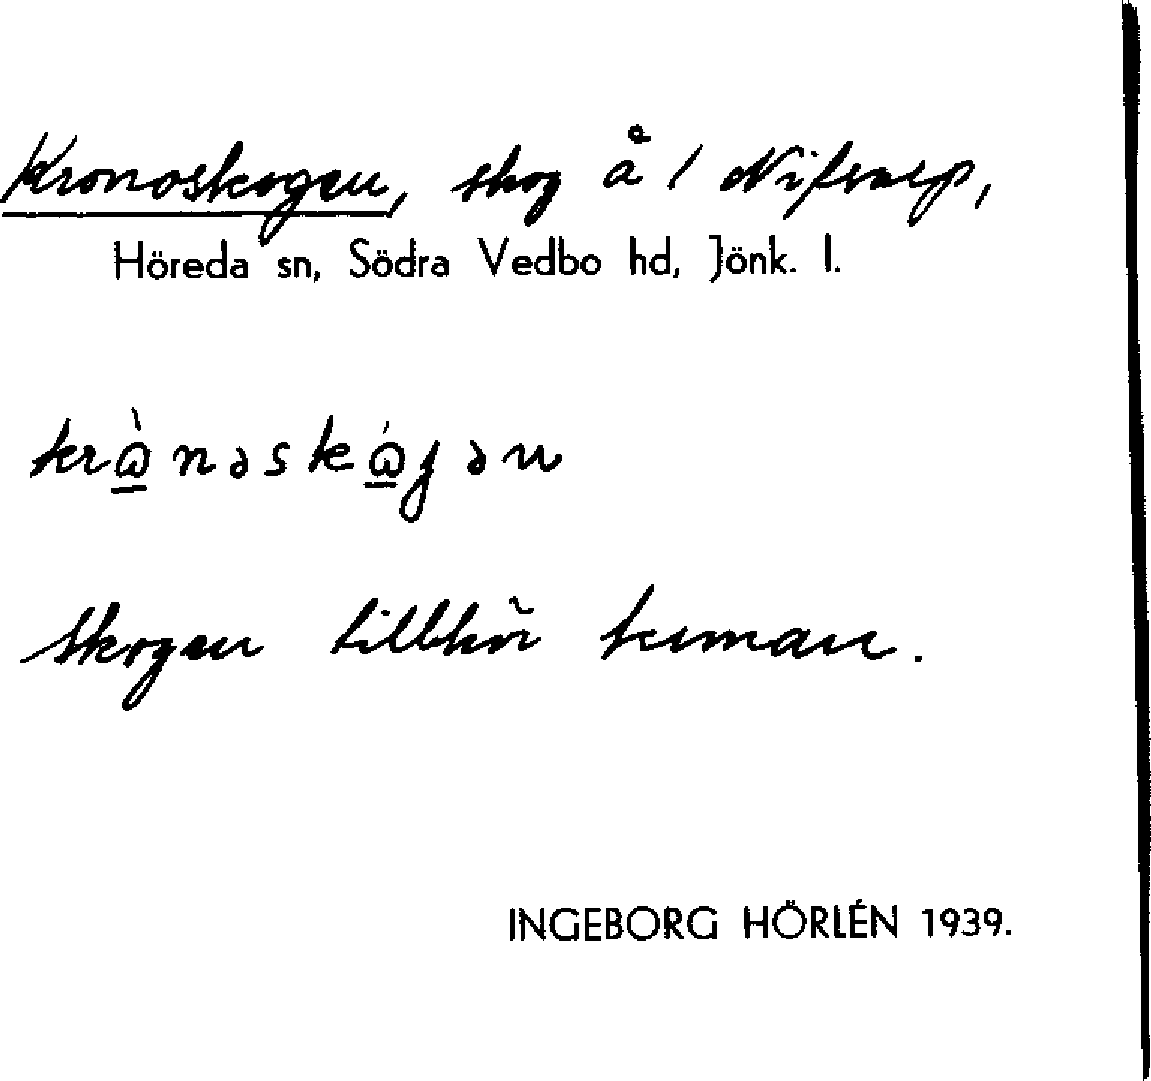 Kronoskogen, skog å 1
Höreda sn, Södra Vedbo hd, Jönk. l.
krὼnəskώgən
Skogen tillhör kronan.
INGEBORG HÖRLÉN 1939.